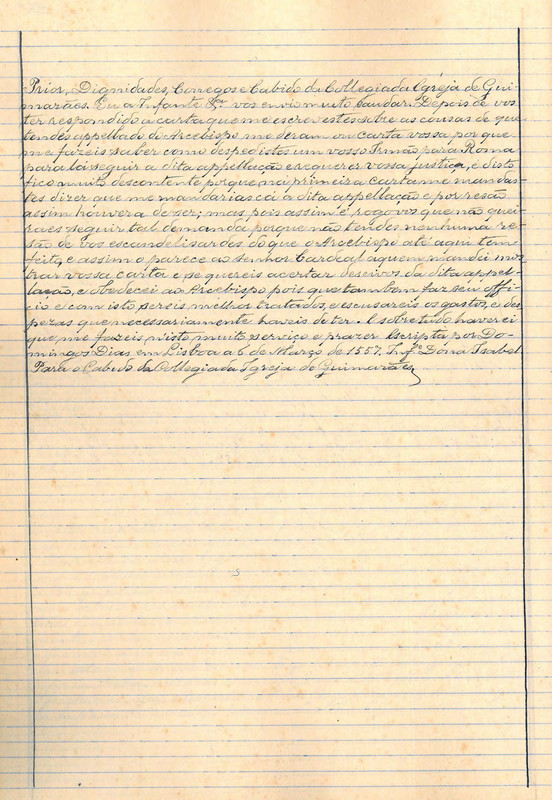 Prior, Dignidades, Conegos e Cabido da Collegiada Igreja de Gui-
marães. Eu a Infante &ca vos envio muito saudar. Depois de vos
ter respondido a carta que me escrevestes sobre as cousas de que
tendes appellado do Arcebispo me deram ou carta vossa por que
me fazeis saber como despedistes um vosso Irmão para Roma
para lá seguir a dita appellação e requerer vossa justiça, e disto
fico muito descontente porque na primeira carta me mandas-
tes dizer que me mandarias cá a dita appellação e por resão
assim houvera de ser; mas, pois assim é, rogo vos que não quei-
raes seguir tal demanda porque não tendes nenhuma re-
são de vos escandelisardes do que o Arcebispo até aqui tem
feito, e assim o parece ao Senhor Cardeal áquem mandei mos-
trar vossa carta e se quereis acertar descivos da dita appel-
lação, e obedecei ao Arcebispo pois que tambem faz seu offi-
cio e com isto sereis melhor tratados, e escusareis os gastos, e des-
pezas que necessariamente haveis de ter. E sobre tudo haverei
que me fazeis nisto muito serviço e prazer Escripta por Do-
mingos Dias em Lisboa a 6 de Março de 1557. Inf.te Dona Isabel
Para o Cabido da Collegiada Igreja de Guimarães